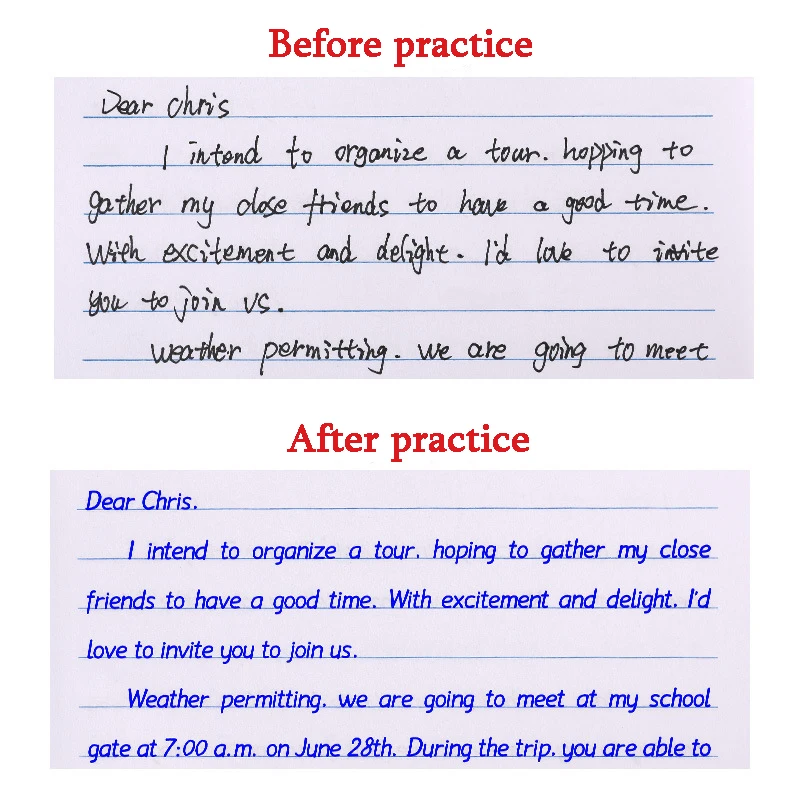 Before practice
Dear Chris
I intend to organize a tour. hopping to
gather my close friends to have a good time.
With excitement and delight. I'd love to invite
you to join us.
Weather permitting. we are going to meet
After practice
Dear Chris.
I intend to organize a tour. hoping to gather my close
friends to have a good time. With excitement and delight. I'd
love to invite you to join us.
Weather permitting. we are going to meet at my school
gate at 7:00 a.m. on June 28th. During the trip. you are able to